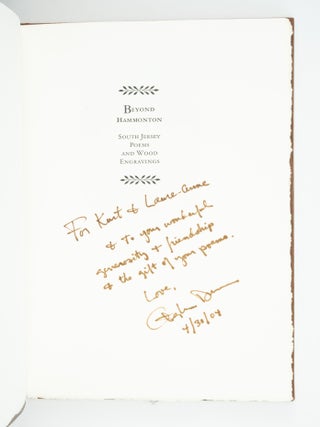 BEYOND
HAMMONTON
SOUTH JERSEY
POEMS
AND WOOD
ENGRAVINGS
For Kurt & Laure-Anne
& to your wonderful
generosity & friendship
& the gift of your poems.
Love,
Stephen Dunn
4/30/04